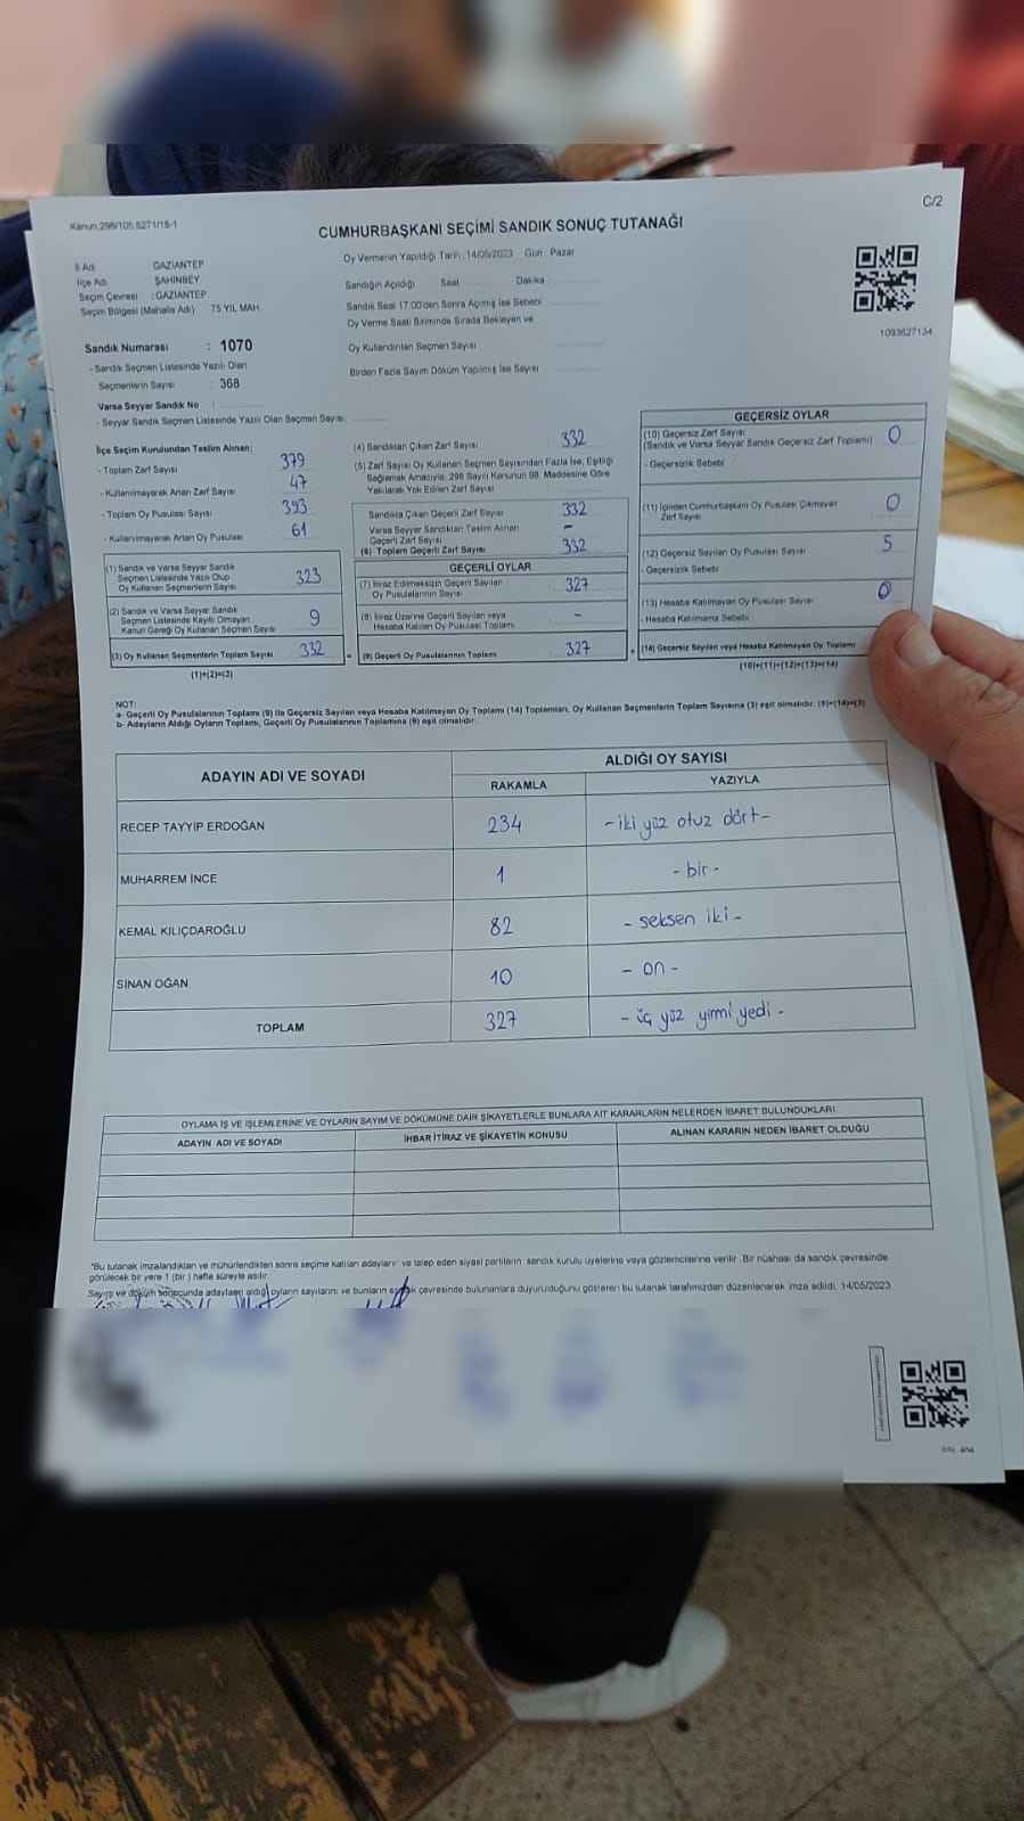 Kanun:298/105,6271/16-1
C/2
CUMHURBAŞKANI SEÇİMİ SANDIK SONUÇ TUTANAĞI
İl Adı GAZİANTEP
İlçe Adı ŞAHİNBEY
Seçim Çevresi : GAZİANTEP
Seçim Bölgesi (Mahalle Adı) 75 YIL MAH.
Oy Vermenin Yapıldığı Tarih : 14/05/2023 Gün : Pazar
Sandığın Açıldığı Saat Dakika
Sandık Saat 17.00'den Sonra Açılmış İse Sebebi
Oy Verme Saati Bitiminde Sırada Bekleyen ve
Oy Kullandırılan Seçmen Sayısı
Birden Fazla Sayım Döküm Yapılmış İse Sayısı
1093627134
Sandık Numarası : 1070
- Sandık Seçmen Listesinde Yazılı Olan
Seçmenlerin Sayısı : 368
Varsa Seyyar Sandık No :
- Seyyar Sandık Seçmen Listesinde Yazılı Olan Seçmen Sayısı
İlçe Seçim Kurulundan Teslim Alınan;
- Toplam Zarf Sayısı 379
- Kullanılmayarak Artan Zarf Sayısı 47
- Toplam Oy Pusulası Sayısı 393
- Kullanılmayarak Artan Oy Pusulası 61
(1) Sandık ve Varsa Seyyar Sandık
Seçmen Listesinde Yazılı Olup
Oy Kullanan Seçmenlerin Sayısı 323
(2) Sandık ve Varsa Seyyar Sandık
Seçmen Listesinde Kayıtlı Olmayan
Kanun Gereği Oy Kullanan Seçmen Sayısı 9
(3) Oy Kullanan Seçmenlerin Toplam Sayısı 332
(1)+(2)=(3)
(4) Sandıktan Çıkan Zarf Sayısı 332
(5) Zarf Sayısı Oy Kullanan Seçmen Sayısından Fazla İse, Eşitliği
Sağlamak Amacıyla; 298 Sayılı Kanunun 98. Maddesine Göre
Yakılarak Yok Edilen Zarf Sayısı
Sandıkta Çıkan Geçerli Zarf Sayısı 332
Varsa Seyyar Sandıktan Teslim Alınan
Geçerli Zarf Sayısı -
(6) Toplam Geçerli Zarf Sayısı 332
GEÇERLİ OYLAR
(7) İtiraz Edilmeksizin Geçerli Sayılan
Oy Pusulalarının Sayısı 327
(8) İtiraz Üzerine Geçerli Sayılan veya
Hesaba Katılan Oy Pusulası Toplamı -
= (9) Geçerli Oy Pusulalarının Toplamı 327
GEÇERSİZ OYLAR
(10) Geçersiz Zarf Sayısı
(Sandık ve Varsa Seyyar Sandık Geçersiz Zarf Toplamı) 0
- Geçersizlik Sebebi
(11) İçinden Cumhurbaşkanı Oy Pusulası Çıkmayan
Zarf Sayısı 0
(12) Geçersiz Sayılan Oy Pusulası Sayısı 5
- Geçersizlik Sebebi
(13) Hesaba Katılmayan Oy Pusulası Sayısı 0
- Hesaba Katılmama Sebebi
+ (14) Geçersiz Sayılan veya Hesaba Katılmayan Oy Toplamı
(10)+(11)+(12)+(13)=(14)
NOT:
a- Geçerli Oy Pusulalarının Toplamı (9) ile Geçersiz Sayılan veya Hesaba Katılmayan Oy Toplamı (14) Toplamları, Oy Kullanan Seçmenlerin Toplam Sayısına (3) eşit olmalıdır. (9)+(14)=(3)
b- Adayların Aldığı Oyların Toplamı, Geçerli Oy Pusulalarının Toplamına (9) eşit olmalıdır.
ADAYIN ADI VE SOYADI
ALDIĞI OY SAYISI
RAKAMLA YAZIYLA
RECEP TAYYİP ERDOĞAN 234 - iki yüz otuz dört -
MUHARREM İNCE 1 - bir -
KEMAL KILIÇDAROĞLU 82 - seksen iki -
SİNAN OĞAN 10 - on -
TOPLAM 327 - üç yüz yirmi yedi -
OYLAMA İŞ VE İŞLEMLERİNE VE OYLARIN SAYIM VE DÖKÜMÜNE DAİR ŞİKAYETLERLE BUNLARA AİT KARARLARIN NELERDEN İBARET BULUNDUKLARI
ADAYIN ADI VE SOYADI İHBAR İTİRAZ VE ŞİKAYETİN KONUSU ALINAN KARARIN NEDEN İBARET OLDUĞU
*Bu tutanak imzalandıktan ve mühürlendikten sonra seçime katılan adayların ve talep eden siyasi partilerin sandık kurulu üyelerine veya gözlemcilerine verilir. Bir nüshası da sandık çevresinde
görülecek bir yere 1 (bir) hafta süreyle asılır.
Sayım ve döküm sonucunda adayların aldığı oyların sayılarını ve bunların sandık çevresinde bulunanlara duyurulduğunu gösteren bu tutanak tarafımızdan düzenlenerek imza edildi. 14/05/2023